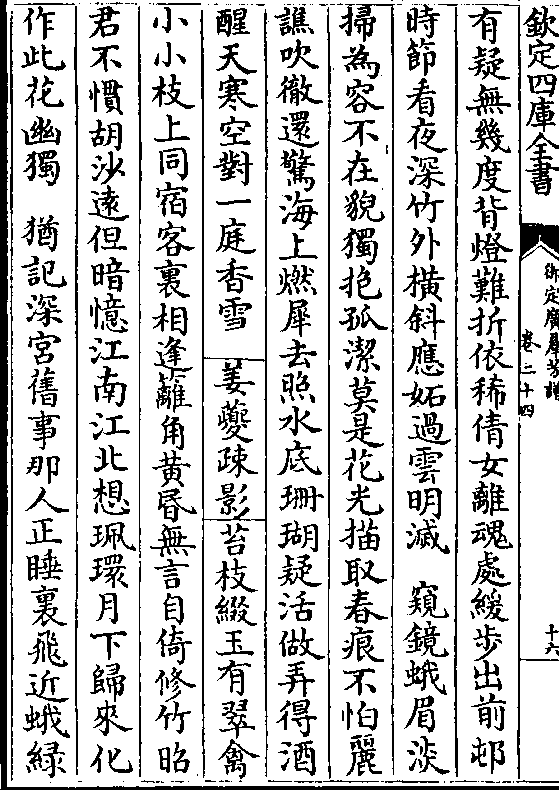 欽定四庫全書
御定廣羣芳譜
卷二十四
十六
有疑無幾度背燈難折依稀倩女離魂處緩步出前邨
時節看夜深竹外橫斜應妬過雲明滅　窺鏡蛾眉淡
掃為容不在貌獨抱孤潔莫是花光描取春痕不怕麗
譙吹徹還驚海上燃犀去照水底珊瑚疑活做弄得酒
醒天寒空對一庭香雪　姜夔疎影　苔枝綴玉有翠禽
小小枝上同宿客裏相逢籬角黄昏無言自倚修竹昭
君不慣胡沙逺但暗憶江南江北想珮環月下歸來化
作此花幽獨　猶記深宮舊事那人正睡裏飛近蛾緑